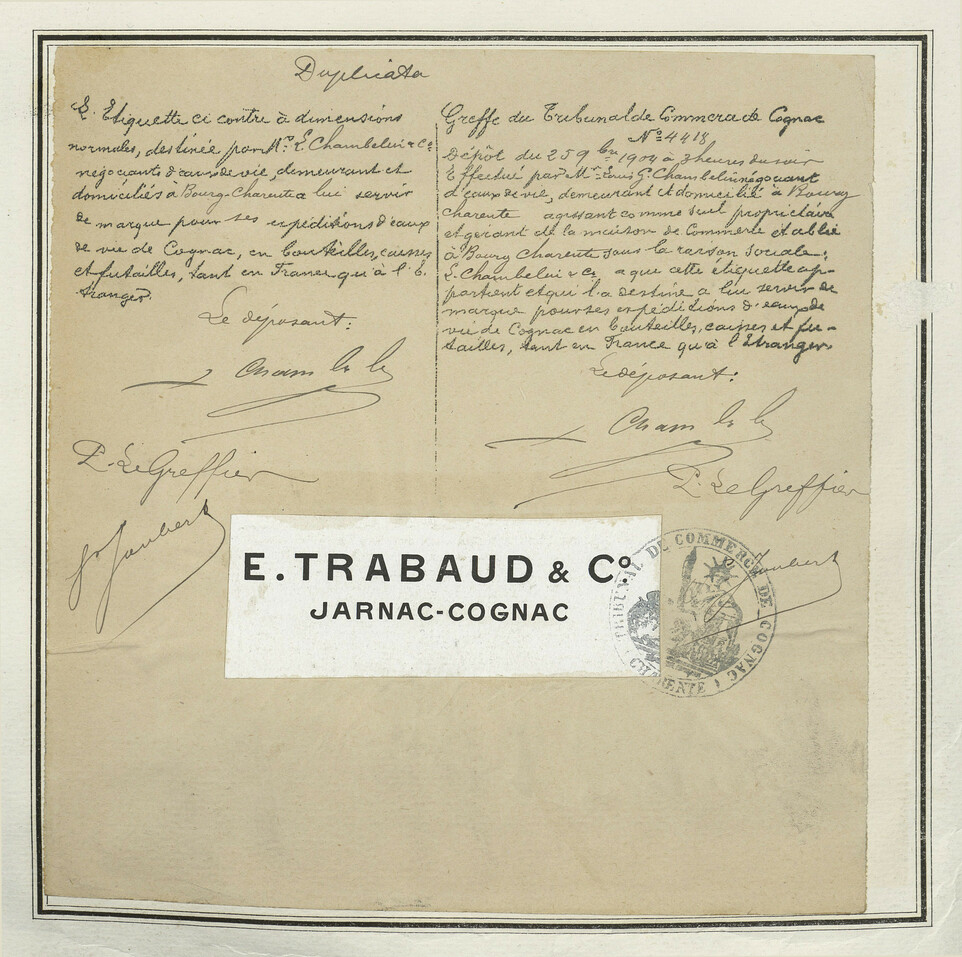 Duplicata
L'Etiquette ci contre à dimensions
normales, destinée par Mrs. L. Chambelui & Co
négociants d'eaux de vie, demeurant et
domiciliés à Bourg-Charente a lui servir
de marque pour ses expéditions d'eaux
de vie de Cognac, en bouteilles, caisses
et futailles, tant en France qu'à l'E-
tranger.
Le déposant:
P. Le Greffier
Joubert
Greffe du Tribunal de Commerce de Cognac
No 4418
Dépôt du 25 9bre 1904 à 3 heures du soir
Effectué par Mr Louis G. Chambelui négociant
d'eaux de vie, demeurant et domicilié à Bourg
Charente agissant comme seul propriétaire
et gérant de la maison de Commerce établie
à Bourg Charente sous la raison sociale:
L. Chambelui & Co, a que cette étiquette ap-
partient et qu'il l'a destine a lui servir de
marque pour ses expéditions d'eaux de
vie de Cognac en bouteilles, caisses et fu-
tailles, tant en France qu'à l'Etranger
Le déposant:
P. Le Greffier
Joubert
E. TRABAUD & Co.
JARNAC-COGNAC
TRIBUNAL DE COMMERCE DE COGNAC
(CHARENTE)